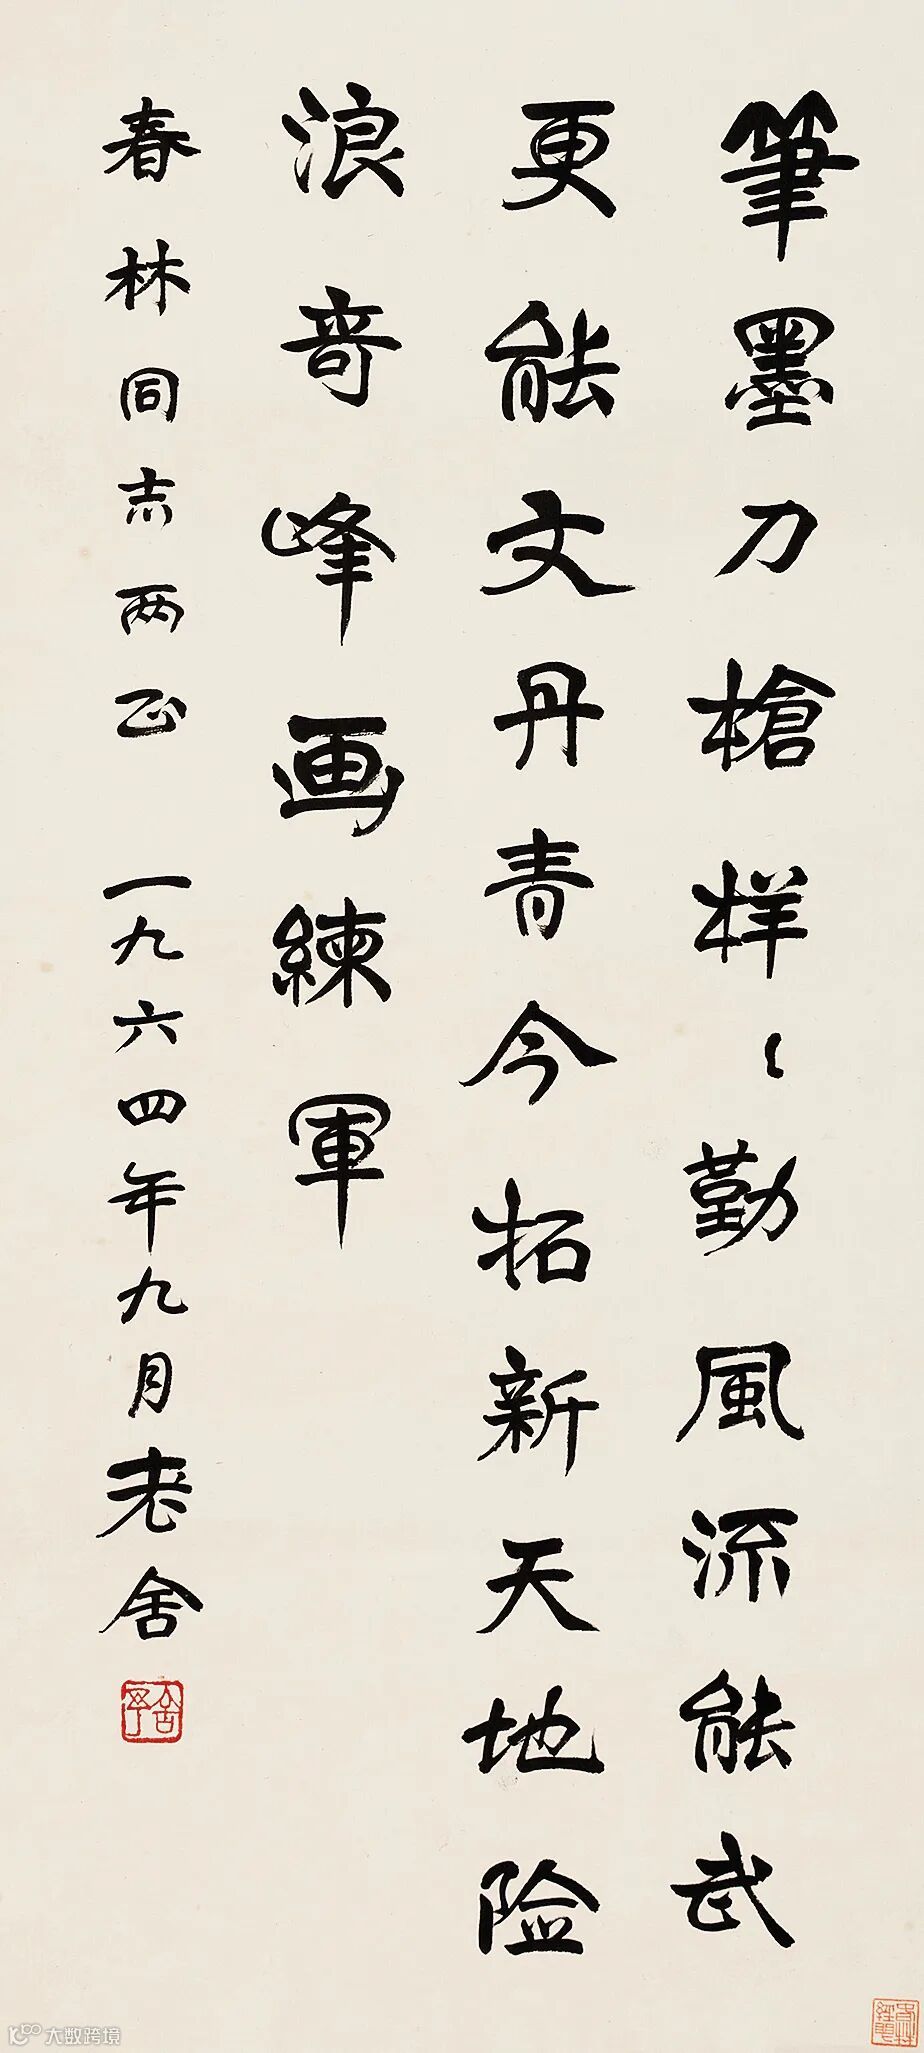 筆墨刀槍样々勤風流能武
更能文丹青今拓新天地险
浪奇峰画練軍
春林同志两正 一九六四年九月老舍
舍予
大数跨境